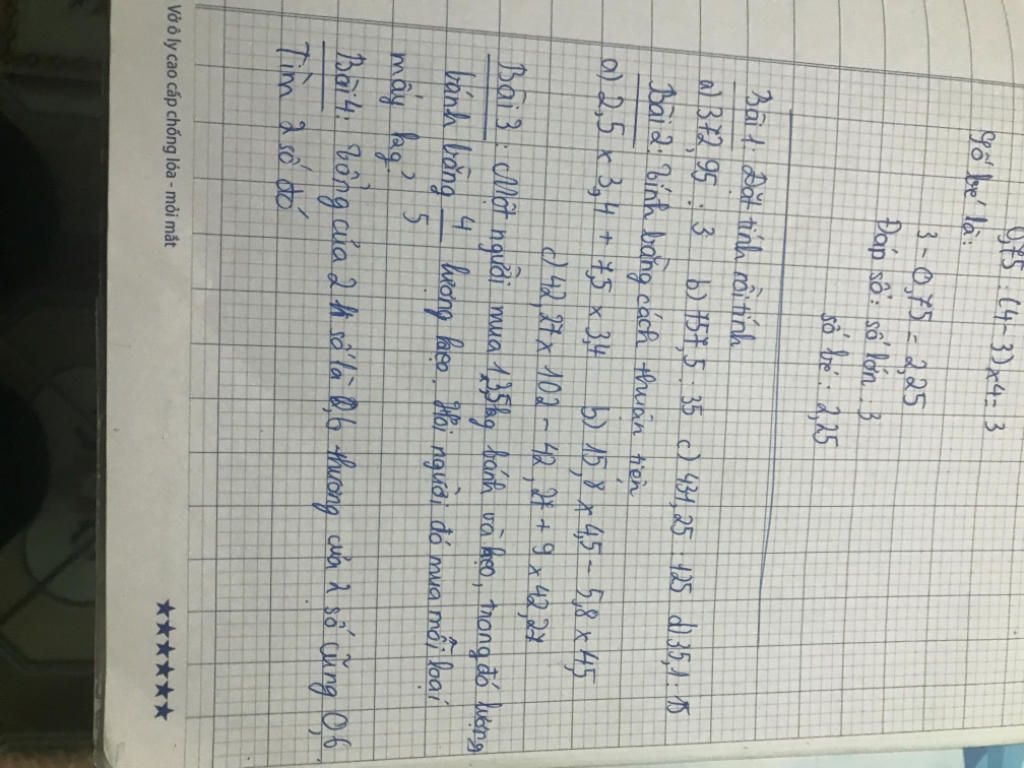 0,75 : (4 - 3) x 4 = 3
Số bé là:
3 - 0,75 = 2,25
Đáp số: số lớn: 3
số bé: 2,25
Bài 1: Đặt tính rồi tính
a) 372,95 : 3 b) 757,5 : 35 c) 431,25 : 125 d) 35,1 : 15
Bài 2: Tính bằng cách thuận tiện
a) 2,5 x 3,4 + 7,5 x 3,4 b) 15,8 x 4,5 - 5,8 x 4,5
c) 42,27 x 102 - 42,27 + 9 x 42,27
Bài 3: Một người mua 13,5kg bánh và kẹo, trong đó lượng
bánh bằng 4/5 lượng kẹo. Hỏi người đó mua mỗi loại
mấy kg?
Bài 4: Tổng của 2 số là 0,6 thương của 2 số cũng 0,6.
Tìm 2 số đó
Vở ô ly cao cấp chống lóa - mỏi mắt